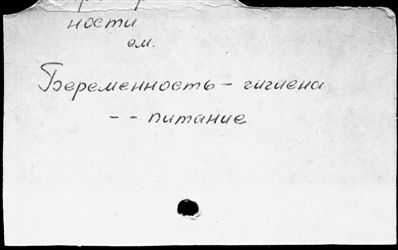 ности
см.
Беременность - гигиена
- - питание